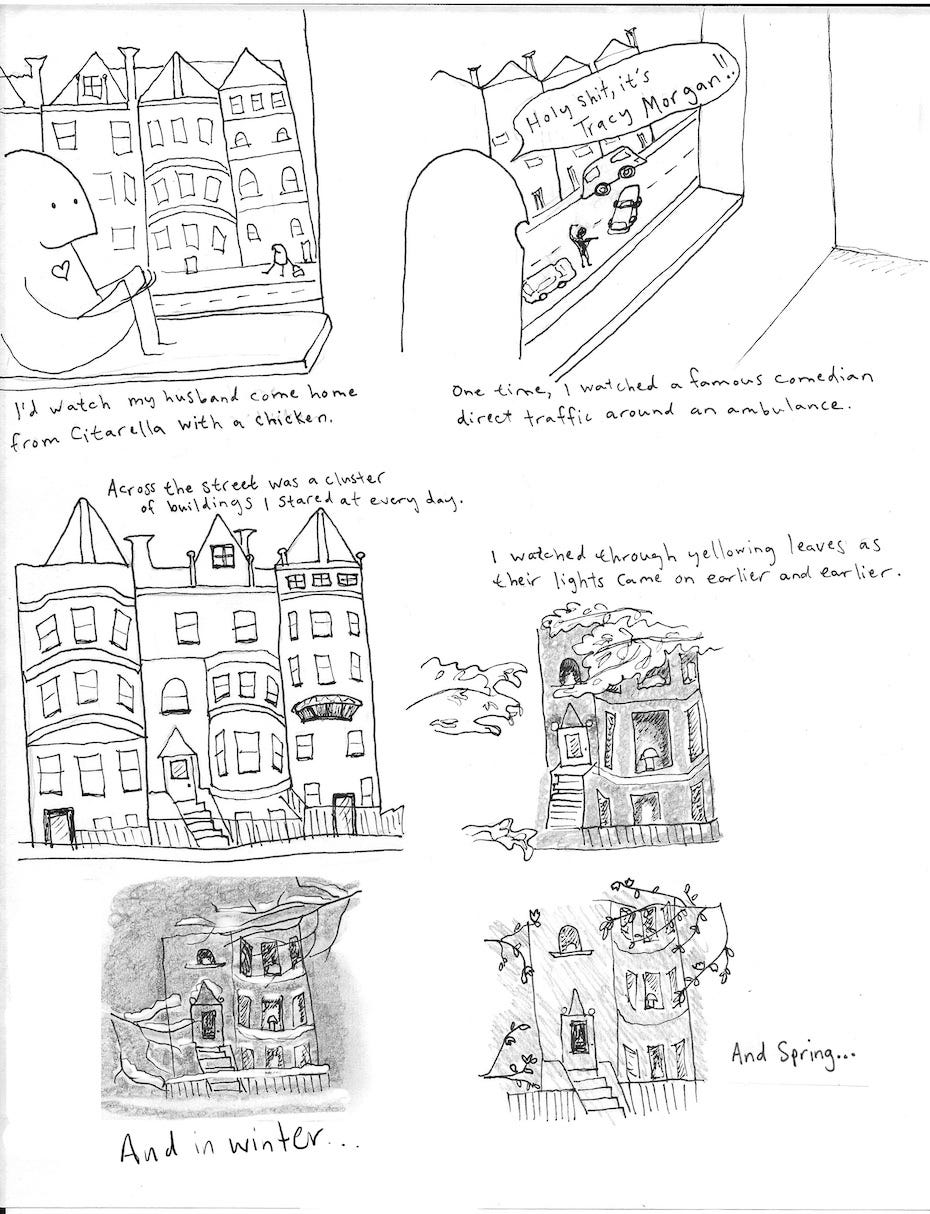 Holy shit, it's
Tracy Morgan!!
I'd watch my husband come home
from Citarella with a chicken.
One time, I watched a famous comedian
direct traffic around an ambulance.
Across the street was a cluster
of buildings I stared at every day.
I watched through yellowing leaves as
their lights came on earlier and earlier.
And in winter...
And Spring...